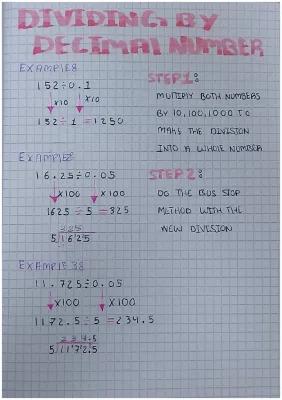 DIVIDING BY
DECIMAL NUMBER
EXAMPLE 8
152÷0.1
x10 x10
152÷1 =1250
EXAMPLE 2
16.25÷0.05
x100 x100
1625÷5=325
325
5|1625
EXAMPLE 38
11.725÷0.05
x100 x100
1172.5÷5=234.5
234.5
5|1172.5
STEP 1:
MULTIPLY BOTH NUMBERS
BY 10,100,1000 TO
MAKE THE DIVISION
INTO A WHOLE NUMBER
STEP 2:
DO THE BUS STOP
METHOD WITH THE
NEW DIVISION